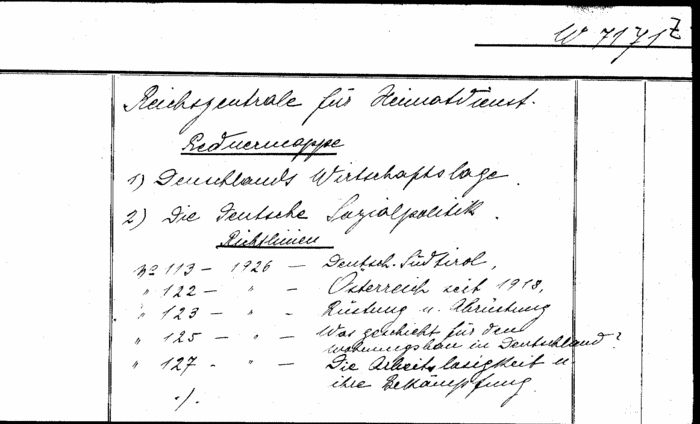 W 7171 Z
Reichszentrale für Heimatdienst.
Rednermappe
1) Deuschlands Wirtschaftslage.
2) Die Deutsche Sozialpolitik.
Richtlinien
No 113 - 1926 - Deutsch. Südtirol,
" 122 - " - Österreich seit 1918,
" 123 - " - Rüstung u. Abrüstung
" 125 - " - Was geschieht für den
Wohnungsbau in Deutschland?
" 127 - " - Die Arbeitslosigkeit u
ihre Bekämpfung.
./.